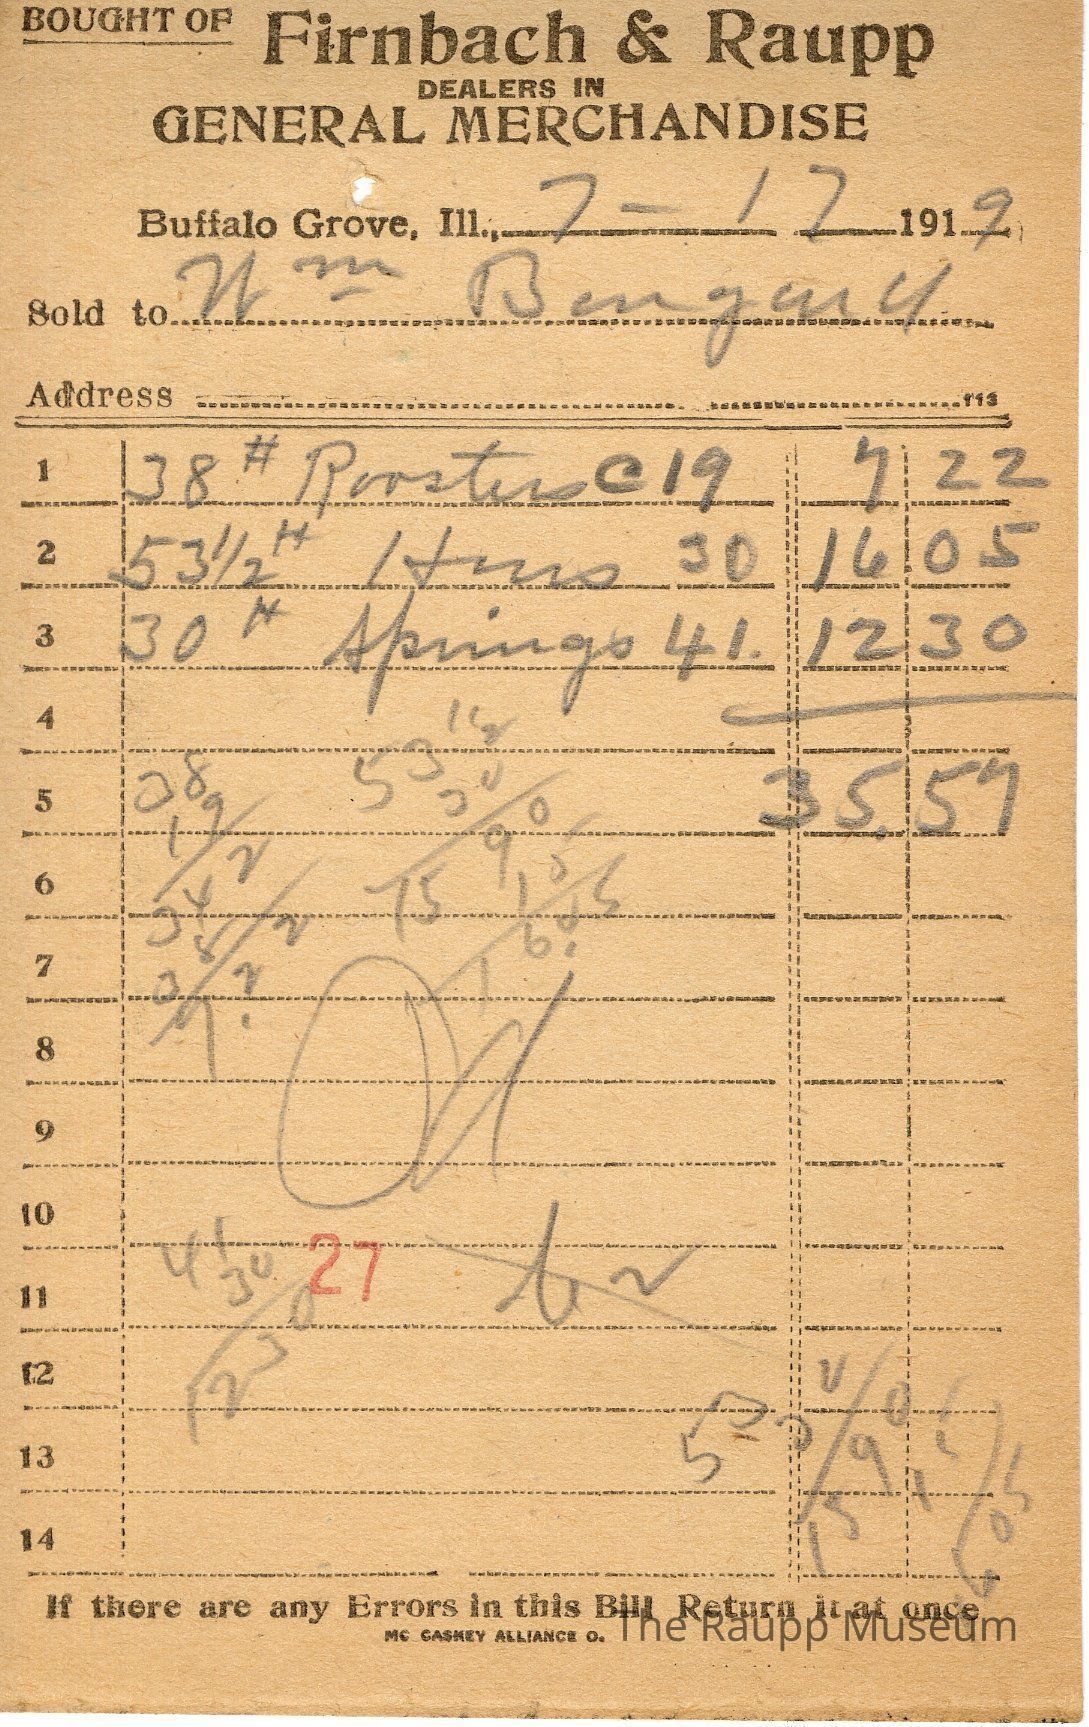 BOUGHT OF Firnbach & Raupp
DEALERS IN
GENERAL MERCHANDISE
Buffalo Grove, Ill., 7 - 17 1919
Sold to Wm
Address 113
1 38 # Roosters @ 19 7 22
2 53 1/2 # Hens 30 16 05
3 30 # Springs 41. 12 30
4
5 35.57
6
7
8
9
10
27
11
12
13
14
If there are any Errors in this Bill Return it at once
MC CASKEY ALLIANCE O.
The Raupp Museum